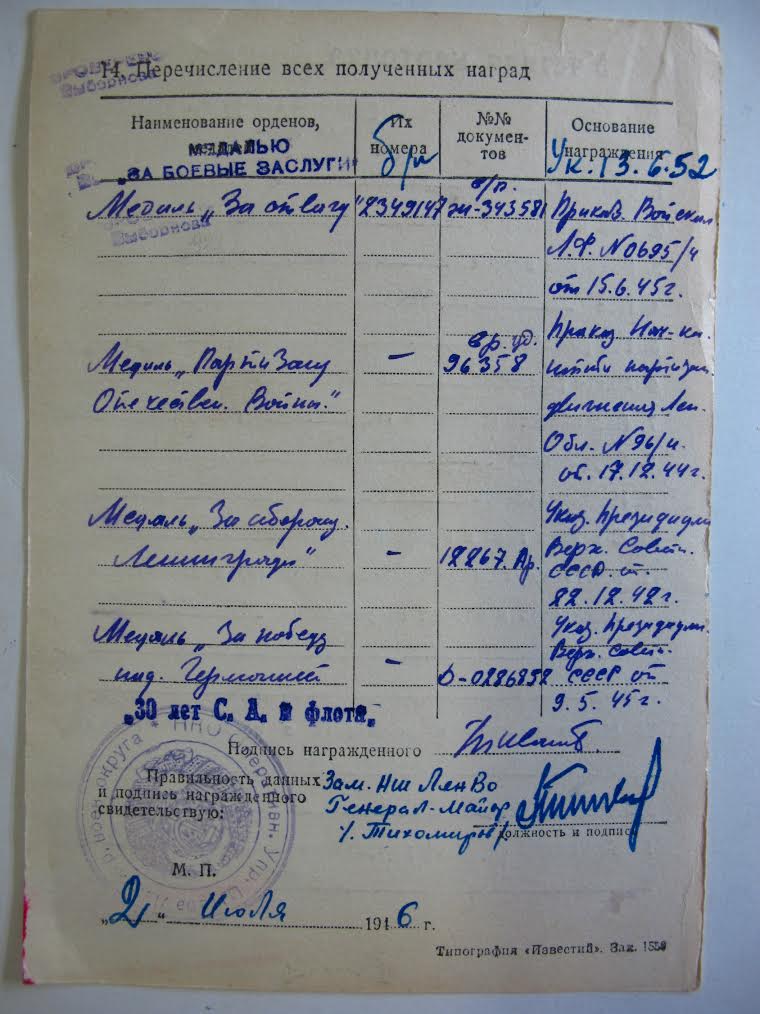 ПРОВЕРЕНО
Выборнова
14. Перечисление всех полученных наград
Наименование орденов,
Их
номера
№№
докумен-
тов
Основание
награждения
МЕДАЛЬЮ
„ЗА БОЕВЫЕ ЗАСЛУГИ“
б/н
Ук. 13.6.52
Медаль „За отвагу“ 2349147
в/р.
Ж-343581
Приказ. Войскам
Л.Ф. N0695/н
от 15.6.45г.
Выборнова
Медаль „Партизану
Отечествен. Войны.“
–
вр. уд.
96358
Приказ
партизан.
движения Лен.
Обл. N96/н.
от. 17.12.44г.
Медаль „За оборону.
Ленинграда“
–
12267. Ар.
Указ. Президиума
Верх. Совета.
СССР. от.
22.12.42г.
Медаль „За победу
над. Германией
–
0-0286852
Указ. Президиума.
Верх. Совета.
СССР от
9.5.45г.
„30 лет С. А. и флота„
Подпись награжденного
Правильность данных
и подпись награжденного
свидетельствую:
Зам. НШ ЛенВО
Генерал-Майор
/.Тихомиров/
должность и подпись
М. П.
„2“ Июля 1946 г.
Типография «Известий». Зак. 1559